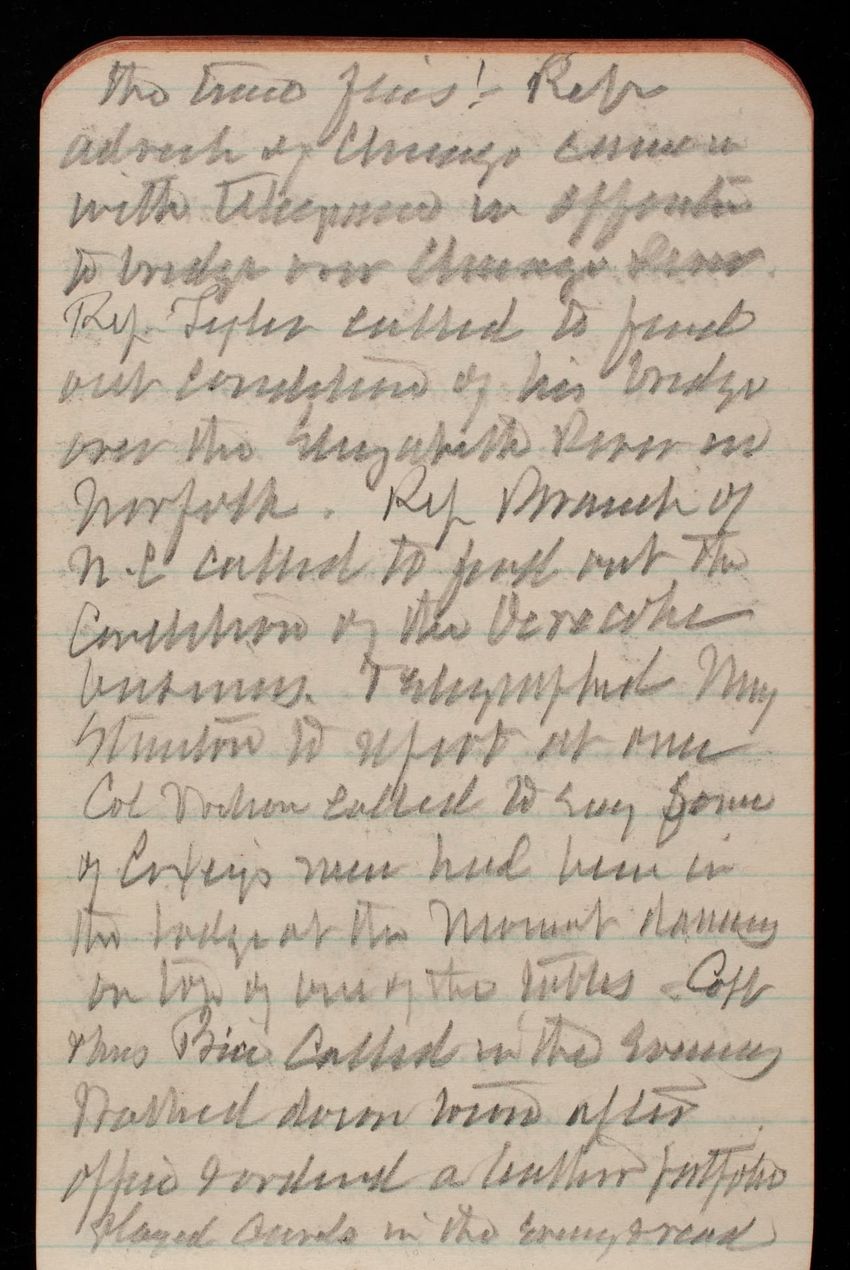 the time flies! Rep
Aldrich of Chicago came in
with telegrams in opposition
to bridge over Chicago River.
Rep. Tyler called to find
out condition of his bridge
over the Elizabeth River in
Norfolk. Rep Branch of
N.C called to find out the
Condition of the Ocracoke
business. Telegraphed Maj
Stanton to report at once
Col Wilson called to say Some
of Coxey's men had been in
the lodge at the Monument dancing
on top of one of the tables - Capt
& Mrs Price Called in the Evening
Walked down town after
office & ordered a leather portfolio
Played Cards in the Evening & read